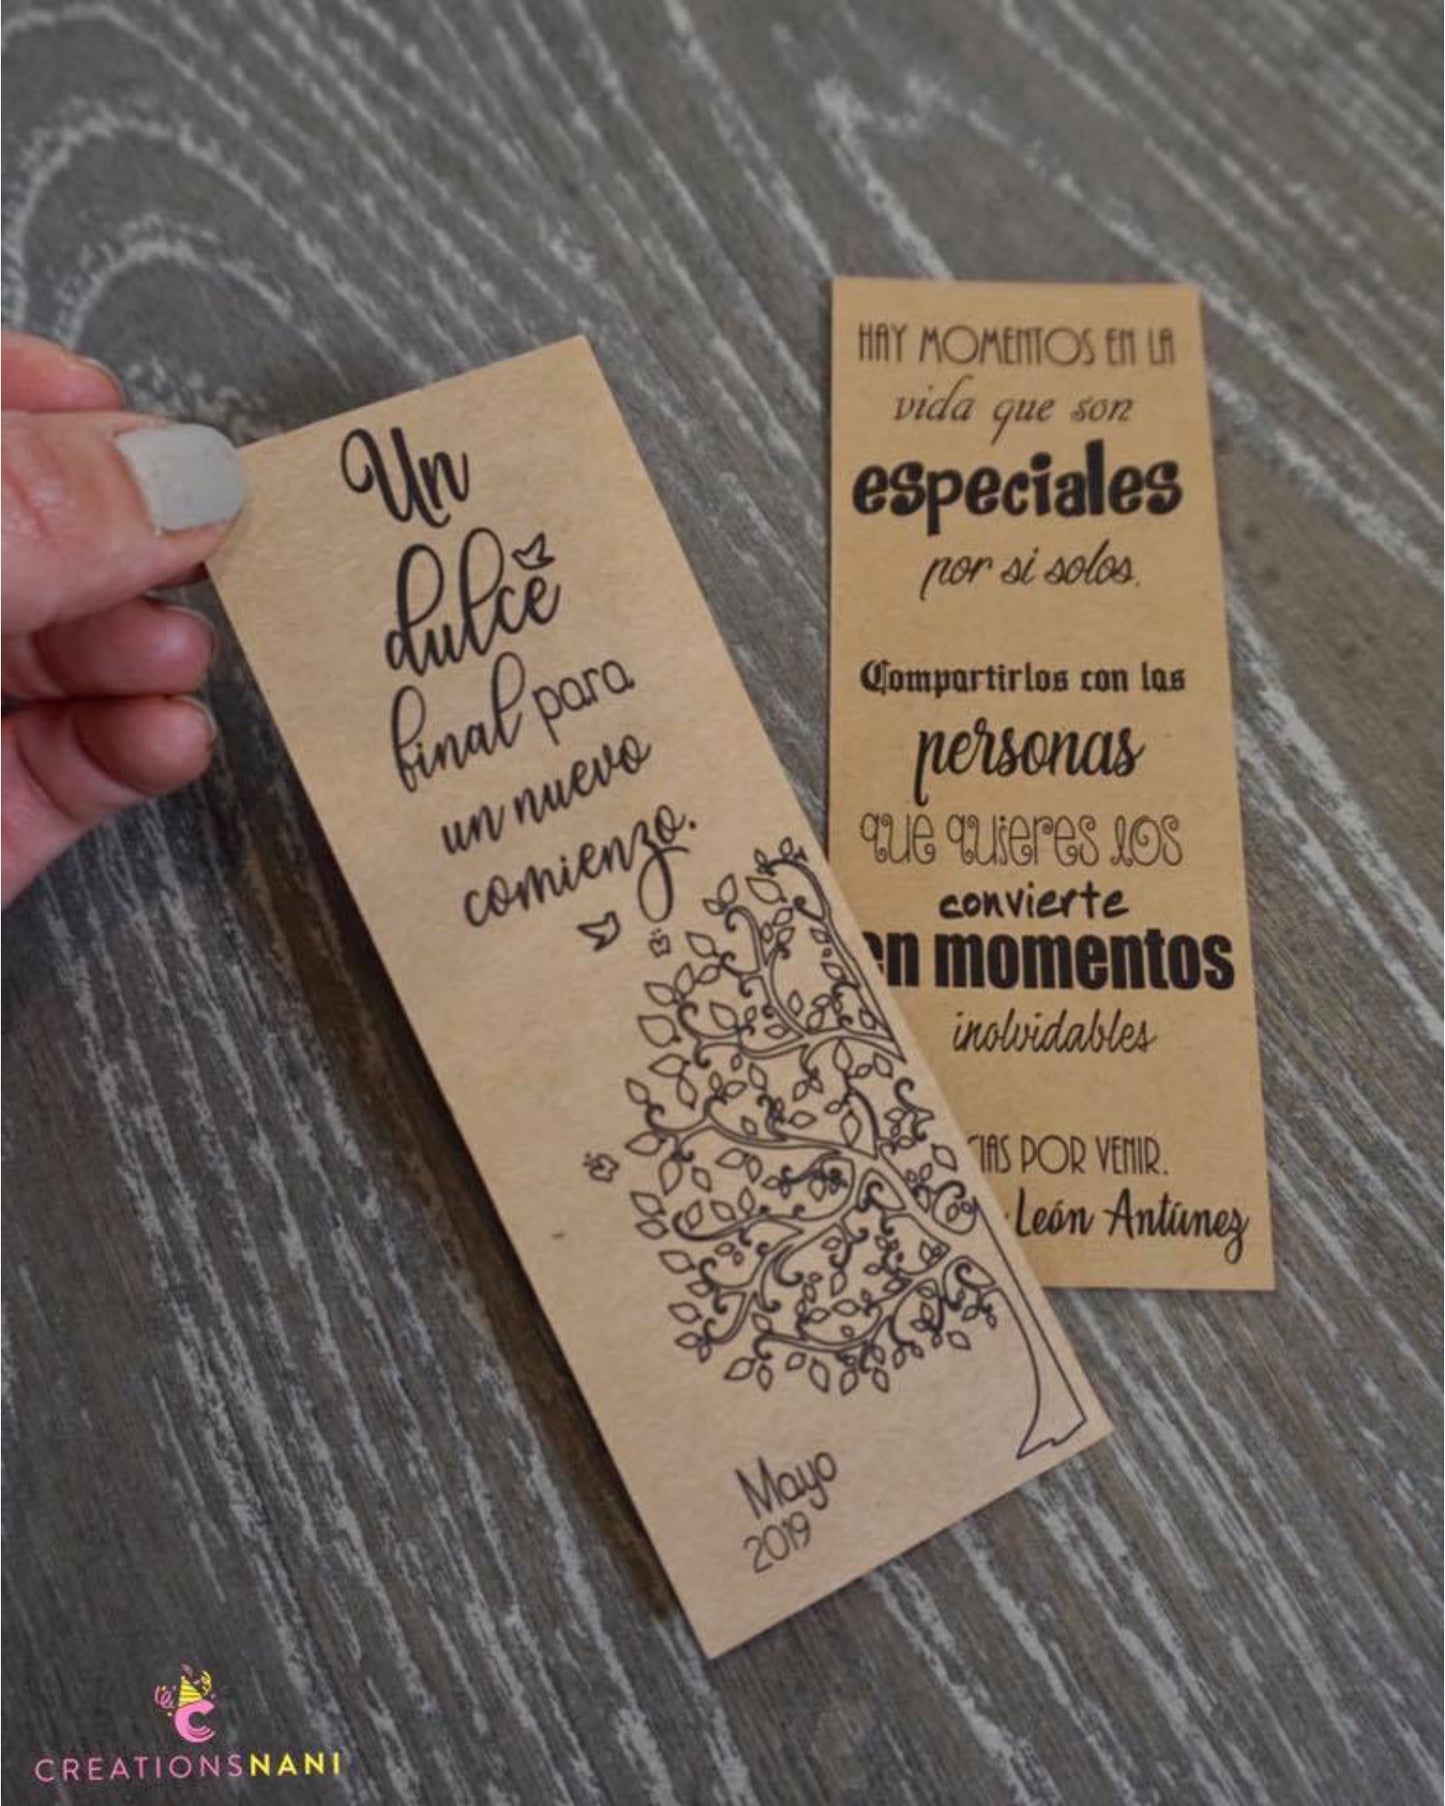 Un
dulce
final para
un nuevo
comienzo.
Mayo
2019
HAY MOMENTOS EN LA
vida que son
especiales
por si solos.
Compartirlos con las
personas
que quieres los
convierte
en momentos
inolvidables
POR VENIR.
León Antúnez
CREATIONSNANI